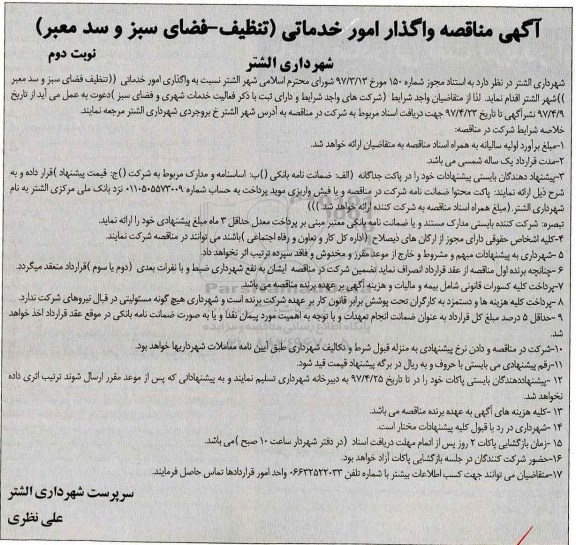 آگهی مناقصه واگذار امور خدماتی (تنظیف-فضای سبز و سد معبر)
نوبت دوم
شهرداری الشتر
شهرداری الشتر در نظر دارد به استناد مجوز شماره ۱۵۰ مورخ ۹۷/۳/۱۳ شورای محترم اسلامی شهر الشتر نسبت به واگذاری امور خدماتی ((تنظیف فضای سبز و سد معبر
))شهر الشتر اقدام نماید. لذا از متقاضیان واجد شرایط (شرکت های واجد شرایط و دارای ثبت با ذکر فعالیت خدمات شهری و فضای سبز )دعوت به عمل می آید از تاریخ
۹۷/۴/۹ نشرآگهی تا تاریخ ۹۷/۴/۲۳ جهت دریافت اسناد مربوط به شرکت در مناقصه به آدرس شهر الشتر خ بروجردی شهرداری الشتر مراجعه نمایند.
خلاصه شرایط شرکت در مناقصه:
۱-مبلغ برآورد اولیه سالیانه به همراه اسناد مناقصه به متقاضیان ارائه خواهد شد.
۲-مدت قرارداد یک ساله شمسی می باشد.
۳-پیشنهاد دهندگان بایستی پیشنهادات خود را در پاکت جداگانه (الف: ضمانت نامه بانکی ()ب: اساسنامه و مدارک مربوط به شرکت ()ج: قیمت پیشنهاد )قرار داده و به
شرح ذیل ارائه نمایند: پاکت محتوا ضمانت نامه شرکت در مناقصه و یا فیش واریزی موید پرداخت به حساب شماره ۰۱۱۰۵۰۵۵۷۳۰۰۹ نزد بانک ملی مرکزی الشتر به نام
شهرداری الشتر.(مبلغ همراه اسناد مناقصه به شرکت کننده ارائه خواهد شد )))
تبصره: شرکت کننده بایستی مدارک مستند و یا ضمانت نامه بانکی معتبر مبنی بر پرداخت معدل حداقل ۳ ماه مبلغ پیشنهادی خود را ارائه نماید.
۴-کلیه اشخاص حقوقی دارای مجوز از ارگان های ذیصلاح (اداره کل کار و تعاون و رفاه اجتماعی )باشند می توانند در مناقصه شرکت نمایند.
۵-شهرداری به پیشنهادات مبهم و مشروط و خارج از موعد مقرر و مخدوش و فاقد سپرده ترتیب اثر نخواهد داد.
۶-چنانچه برنده اول مناقصه از عقد قرارداد انصراف نماید تضمین شرکت در مناقصه ایشان به نفع شهرداری ضبط و با نفرات بعدی (دوم یا سوم )قرارداد منعقد میگردد.
۷-پرداخت کلیه کسورات قانونی شامل بیمه و مالیات و هزینه آگهی بر عهده برنده مناقصه می باشد.
۸-پرداخت کلیه هزینه ها و دستمزد به کارگران تحت پوشش برابر قانون کار بر عهده شرکت برنده است و شهرداری هیچ گونه مسئولیتی در قبال نیروهای شرکت ندارد.
۹-حداقل ۵ درصد مبلغ کل قرارداد به عنوان ضمانت انجام تعهدات و با توجه به اهمیت مورد پیمان نقدا و یا به صورت ضمانت نامه بانکی در موقع عقد قرارداد اخذ خواهد
شد.
۱۰-شرکت در مناقصه و دادن نرخ پیشنهادی به منزله قبول شرط و تکالیف شهرداری طبق آیین نامه معاملات شهرداریها خواهد بود.
۱۱-رقم پیشنهادی می بایستی با حروف و به ریال در برگه پیشنهاد قیمت قید شود.
۱۲-پیشنهاددهندگان بایستی پاکات خود را در تا تاریخ ۹۷/۴/۲۵ به دبیرخانه شهرداری تسلیم نمایند و به پیشنهاداتی که پس از موعد مقرر ارسال شوند ترتیب اثری داده
نخواهد شد.
۱۳-کلیه هزینه های آگهی به عهده برنده مناقصه می باشد.
۱۴-شهرداری در رد یا قبول کلیه پیشنهادات مختار است.
۱۵-زمان بازگشایی پاکات ۲ روز پس از اتمام مهلت دریافت اسناد (در دفتر شهردار ساعت ۱۰ صبح )می باشد.
۱۶-حضور شرکت کنندگان در جلسه بازگشایی پاکات آزاد خواهد بود.
۱۷-متقاضیان می توانند جهت کسب اطلاعات بیشتر با شماره تلفن ۰۶۶۳۲۵۲۲۰۳۳ واحد امور قراردادها تماس حاصل فرمایند.
سرپرست شهرداری الشتر
علی نظری